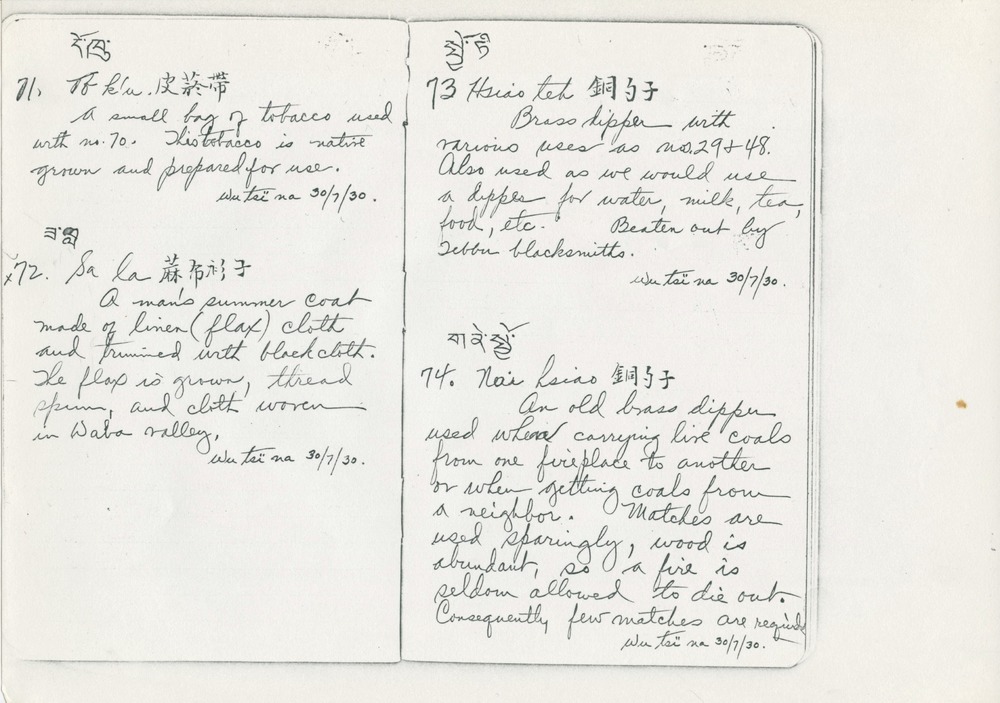 71. To k'u. 皮菸帶
A small bag of tobacco used
with no. 70. This tobacco is native
grown and prepared for use.
Wu tsï na 30/7/30.
72. Sa la 蔴布衫子
A man's summer coat
made of linen (flax) cloth
and trimmed with black cloth.
The flax is grown, thread
spun, and cloth woven
in Waba valley.
Wu tsï na 30/7/30.
73 Hsiao teh 銅勺子
Brass dipper with
various uses as nos. 29 + 48.
Also used as we would use
a dipper for water, milk, tea,
food, etc. Beaten out by
Tebbu blacksmiths.
Wu tsï na 30/7/30.
74. Nai hsiao 銅勺子
An old brass dipper
used when carrying live coals
from one fireplace to another
or when getting coals from
a neighbor. Matches are
used sparingly, wood is
abundant, so a fire is
seldom allowed to die out.
Consequently few matches are required
Wu tsï na 30/7/30.